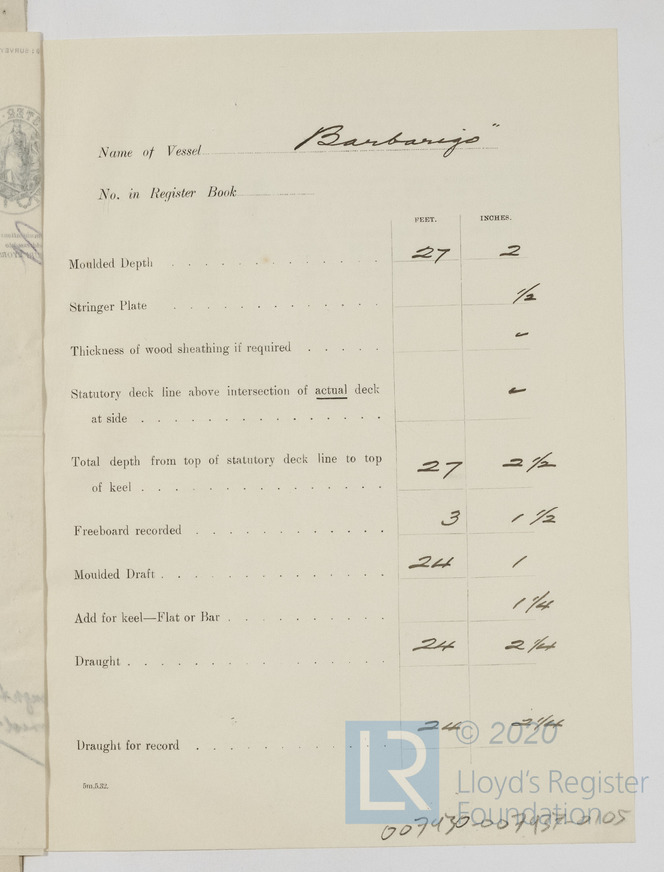 Name of Vessel Barbarigo"
No. in Register Book
FEET. INCHES.
Moulded Depth 27 2
Stringer Plate 1/2
Thickness of wood sheathing if required -
Statutory deck line above intersection of actual deck
at side -
Total depth from top of statutory deck line to top
of keel 27 2 1/2
Freeboard recorded 3 1 1/2
Moulded Draft 24 1
Add for keel—Flat or Bar 1 1/4
Draught 24 2 1/4
Draught for record 24 2 1/4
5m.5.32.
LR
© 2020
Lloyd's Register
Foundation
007430-007437-0105